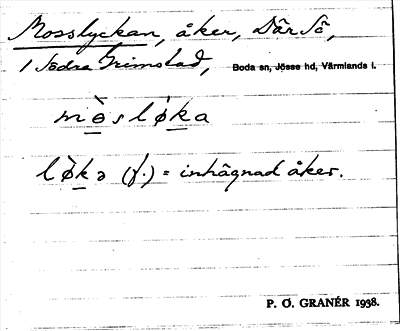 Mosslyckan, åker, Där Sö,
i Södra Grimstad, Boda sn, Jösse hd, Värmlands l.
mȯ̱slø̱̇ḵa
lø̱̀ḵə (f.) = inhägnad åker.
P. O. GRANÉR 1938.